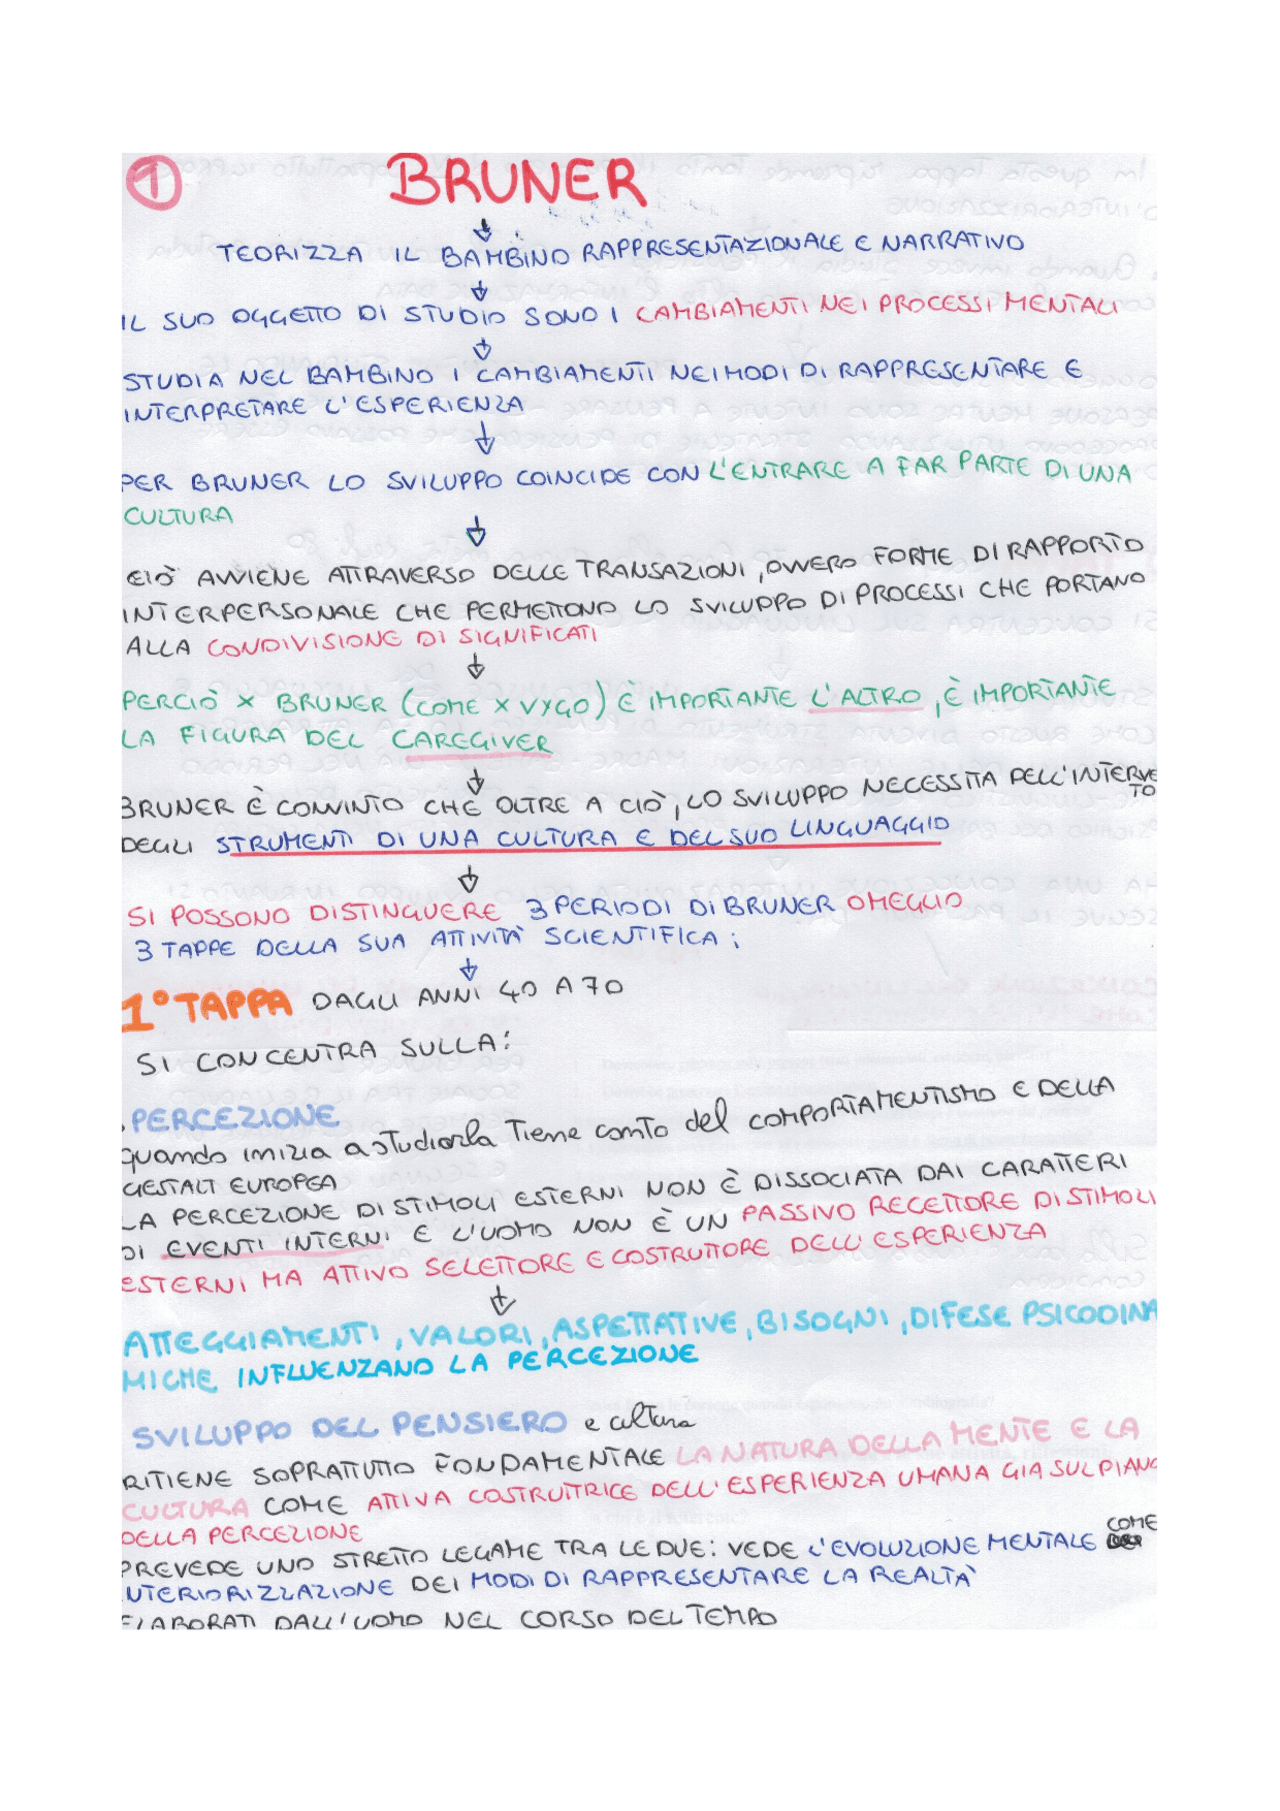 1 BRUNER
TEORIZZA IL BAMBINO RAPPRESENTAZIONALE E NARRATIVO
IL SUO OGGETTO DI STUDIO SONO I CAMBIAMENTI NEI PROCESSI MENTALI
STUDIA NEL BAMBINO I CAMBIAMENTI NEI MODI DI RAPPRESENTARE E
INTERPRETARE L'ESPERIENZA
PER BRUNER LO SVILUPPO COINCIDE CON L'ENTRARE A FAR PARTE DI UNA
CULTURA
CIÒ AVVIENE ATTRAVERSO DELLE TRANSAZIONI, OVVERO FORME DI RAPPORTO
INTERPERSONALE CHE PERMETTONO LO SVILUPPO DI PROCESSI CHE PORTANO
ALLA CONDIVISIONE DI SIGNIFICATI
PERCIÒ X BRUNER (COME X VYGO) È IMPORTANTE L'ALTRO, È IMPORTANTE
LA FIGURA DEL CAREGIVER
BRUNER È CONVINTO CHE OLTRE A CIÒ, LO SVILUPPO NECESSITA DELL'INTERVE
TO
DEGLI STRUMENTI DI UNA CULTURA E DEL SUO LINGUAGGIO
SI POSSONO DISTINGUERE 3 PERIODI DI BRUNER O MEGLIO
3 TAPPE DELLA SUA ATTIVITÀ SCIENTIFICA:
1° TAPPA DAGLI ANNI 40 A 70
SI CONCENTRA SULLA:
. PERCEZIONE
quando inizia a studiarla Tiene conto del COMPORTAMENTISMO E DELLA
GESTALT EUROPEA
LA PERCEZIONE DI STIMOLI ESTERNI NON È DISSOCIATA DAI CARATTERI
DI EVENTI INTERNI E L'UOMO NON È UN PASSIVO RECETTORE DI STIMOLI
ESTERNI MA ATTIVO SELETTORE E COSTRUTTORE DELL'ESPERIENZA
ATTEGGIAMENTI, VALORI, ASPETTATIVE, BISOGNI, DIFESE PSICODINA
MICHE INFLUENZANO LA PERCEZIONE
SVILUPPO DEL PENSIERO e cultura
RITIENE SOPRATTUTTO FONDAMENTALE LA NATURA DELLA MENTE E LA
CULTURA COME ATTIVA COSTRUITRICE DELL'ESPERIENZA UMANA GIA SUL PIANO
DELLA PERCEZIONE
PREVEDE UNO STRETTO LEGAME TRA LE DUE: VEDE L'EVOLUZIONE MENTALE COME
NTERIORIZZAZIONE DEI MODI DI RAPPRESENTARE LA REALTÀ
ELABORATI DALL'UOMO NEL CORSO DEL TEMPO